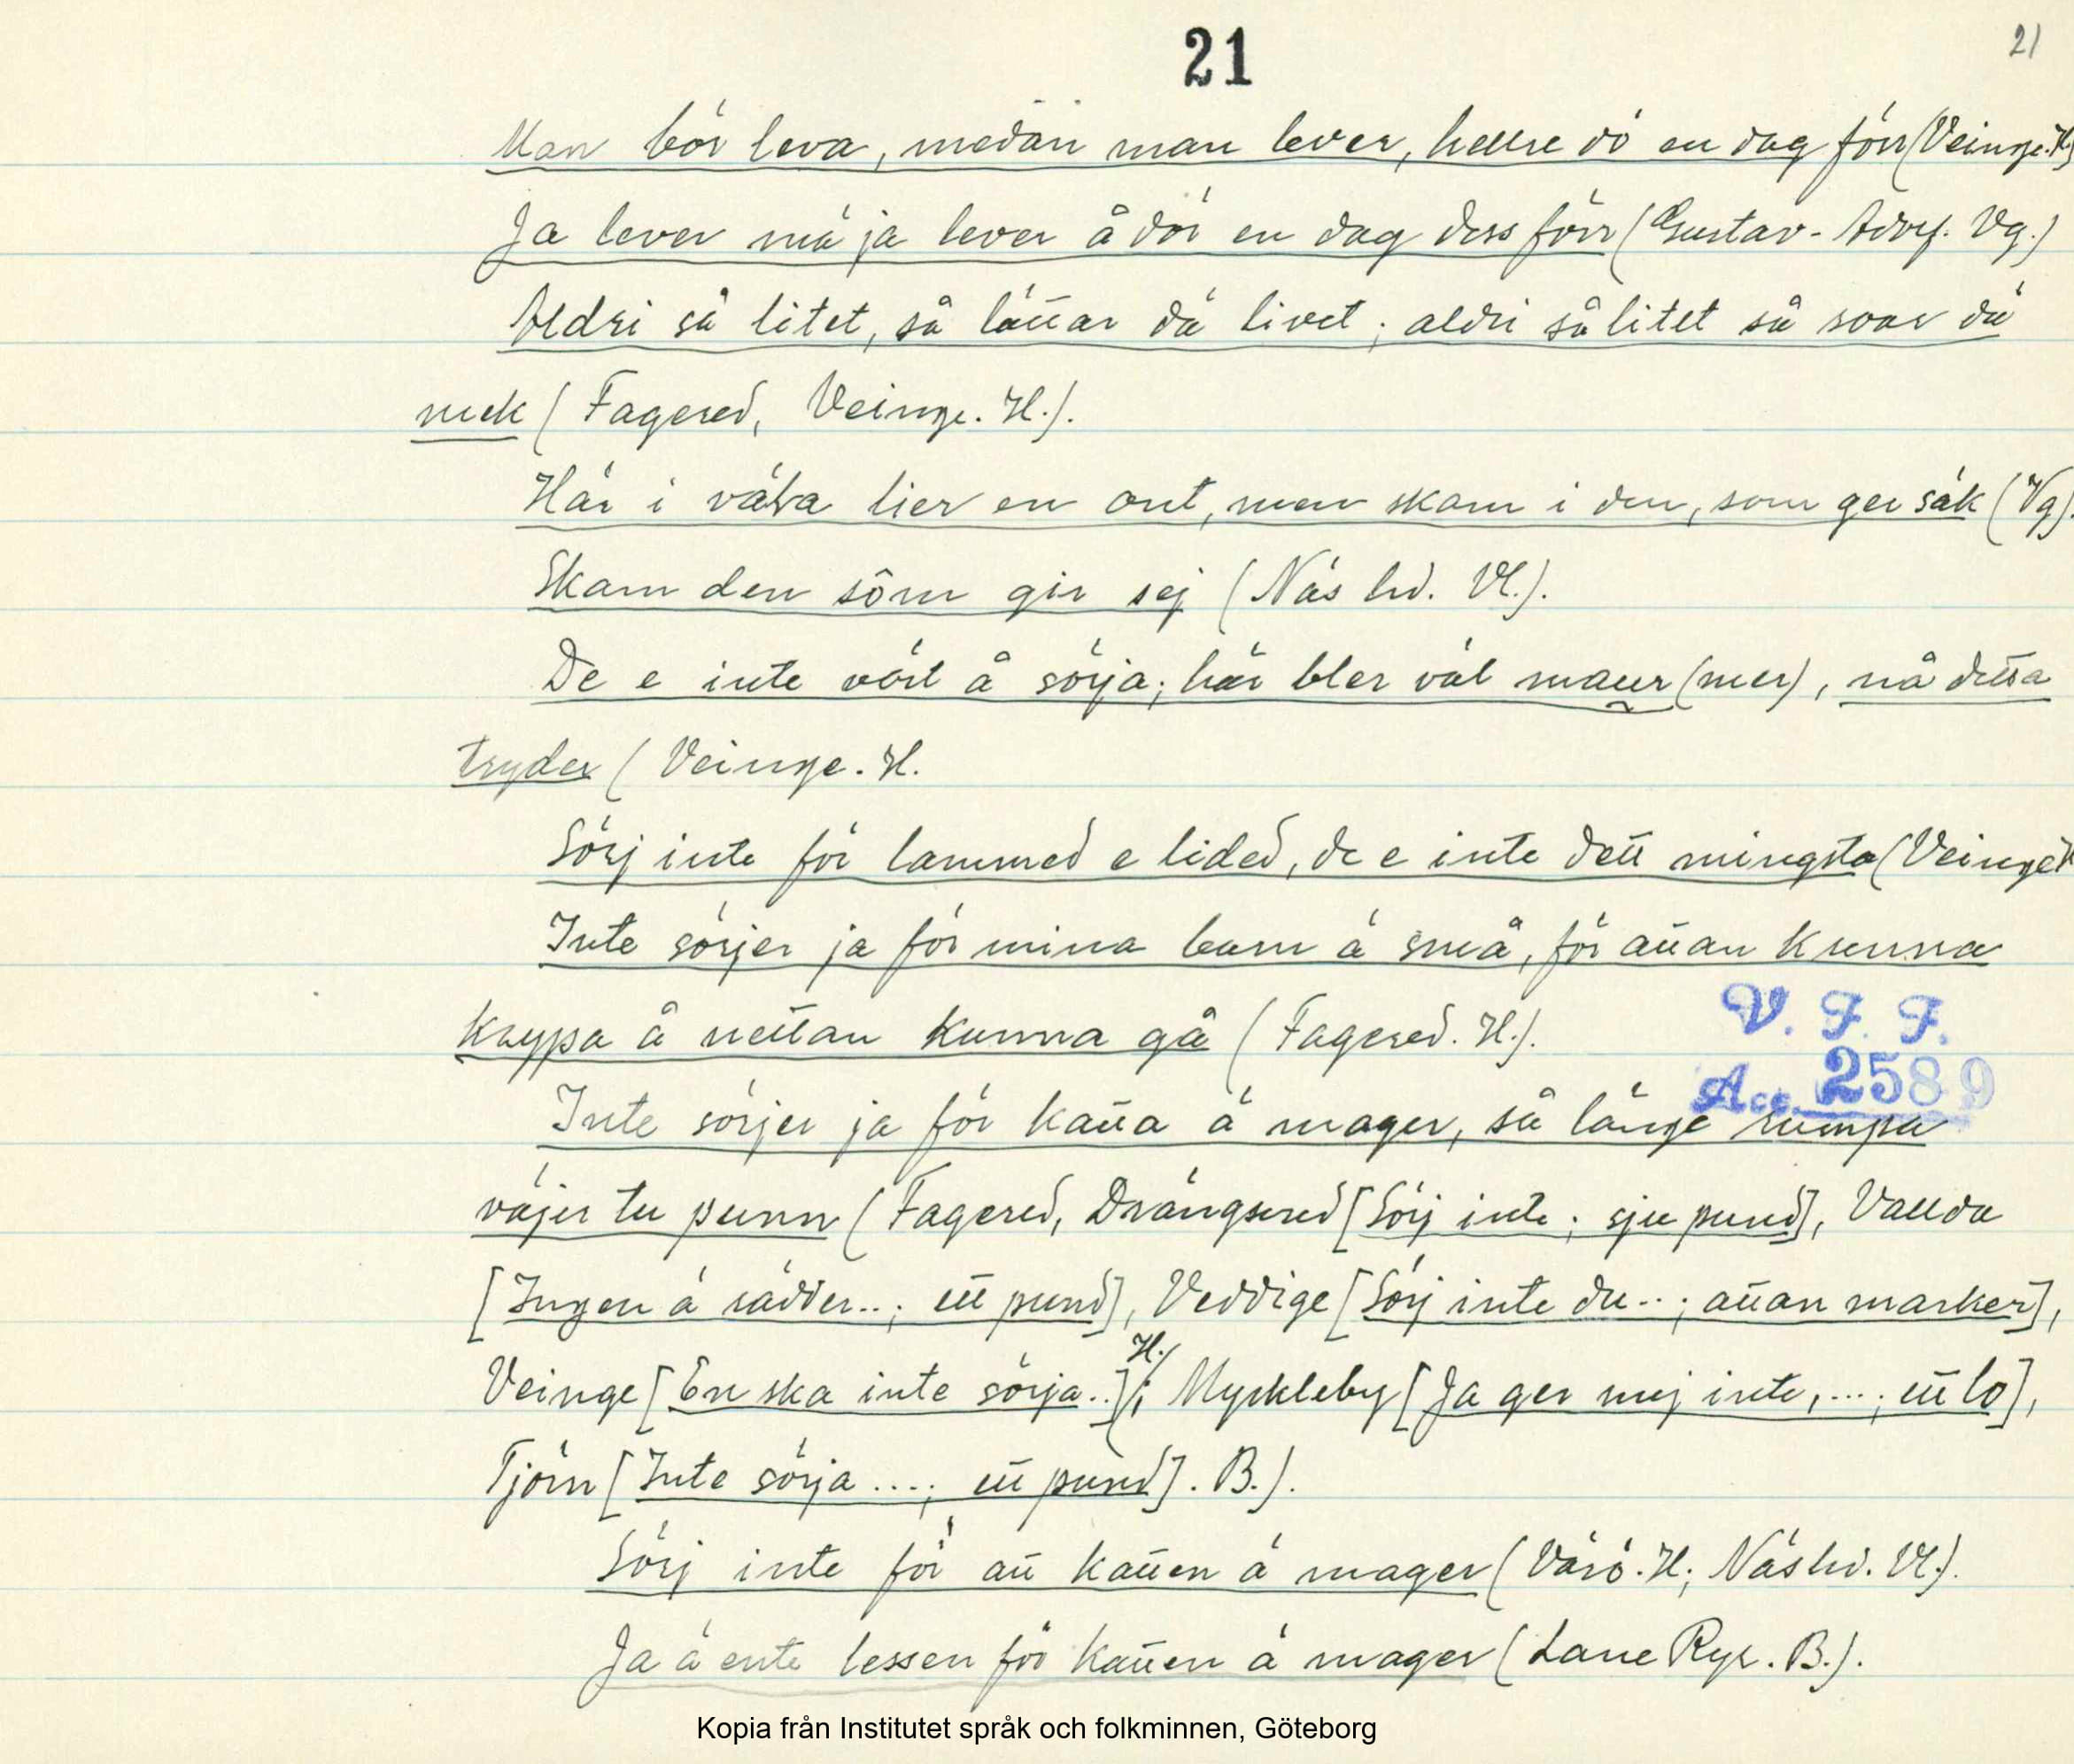 21
21
Man bör leva, medan man lever, hellre dö en dag förr (Veinge. H.)
Ja lever mä ja lever å dör en dag dess förr (Gustav-Adolf. Vg.)
Aldri så litet, så lättar dä livet; aldri så litet så svar dä
nick (Fagered, Veinge. H.).
Här i väla lier en ont, men skam i den, som ger säk (Vg).
Skam den sôm gir sej (Näs hd. Vl.).
De e inte värt å sörja; här bler väl maur (mer), nå detta
tryder (Veinge. H.
Sörj inte för lammed e lided, de e inte dett mingsta (Veinge H
Inte sörjer ja för mina barn ä små, för attan kunna
krypa å nettan kunna gå (Fagered. H.).
V. F. F.
Acc. 2589
Inte sörjer ja för katta ä mager, så länge rumpa
väjer tu punn (Fagered, Drängsered [Sörj inte; sju pund], Vallda
[Ingen ä rädder..; ett pund], Veddige [Sörj inte du..; attan marker],
Veinge [En ska inte sörja..] H.; Myckleby [Ja ger mej inte,...; ett lo],
Tjörn [Inte sörja ....; ett pund]. B.).
Sörj inte för att katten ä mager (Värö. H; Näs hd. Vl.).
Ja ä ente lessen för katten ä mager (Lane Ryr. B.).
Kopia från Institutet språk och folkminnen, Göteborg